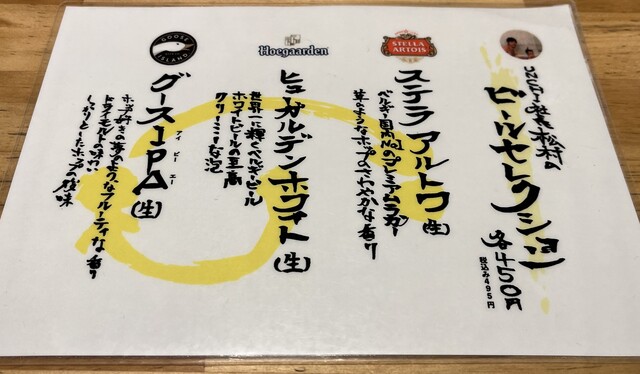 松村の
ビールセレクション
各450円
税込み495円
STELLA
ARTOIS
ステラアルトワ(生)
ベルギー国内No.1のプレミアムラガー
草のようなホップのさわやかな香り
Hoegaarden
ヒューガルデンホワイト(生)
世界一に輝くベルギービール
ホワイトビールの最高
クリーミーな泡
GOOSE
ISLAND
グースIPA(生)
アイピーエー
ホップ好きの夢のようなフルーティな香り
ドライモルトの味わい
しっかりとしたホップの後味